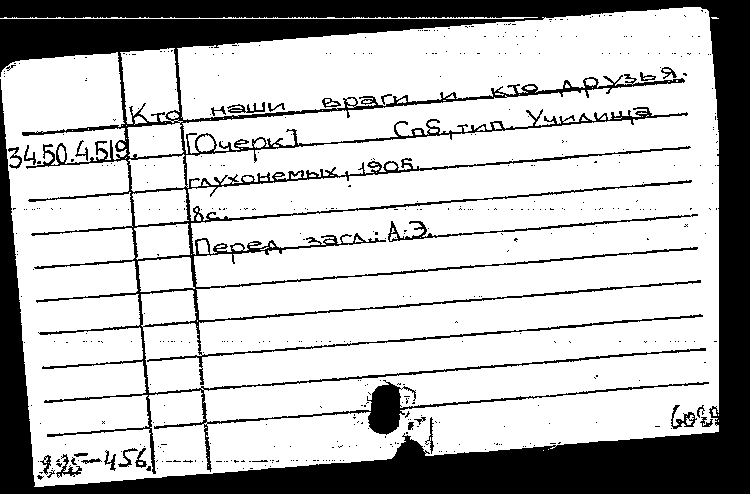 Кто наши враги и кто друзья.
34.50.4.519. [Очерк]. Спб., тип. Училища
глухонемых, 1905.
8с.
Перед загл.: А.Э.
-456.